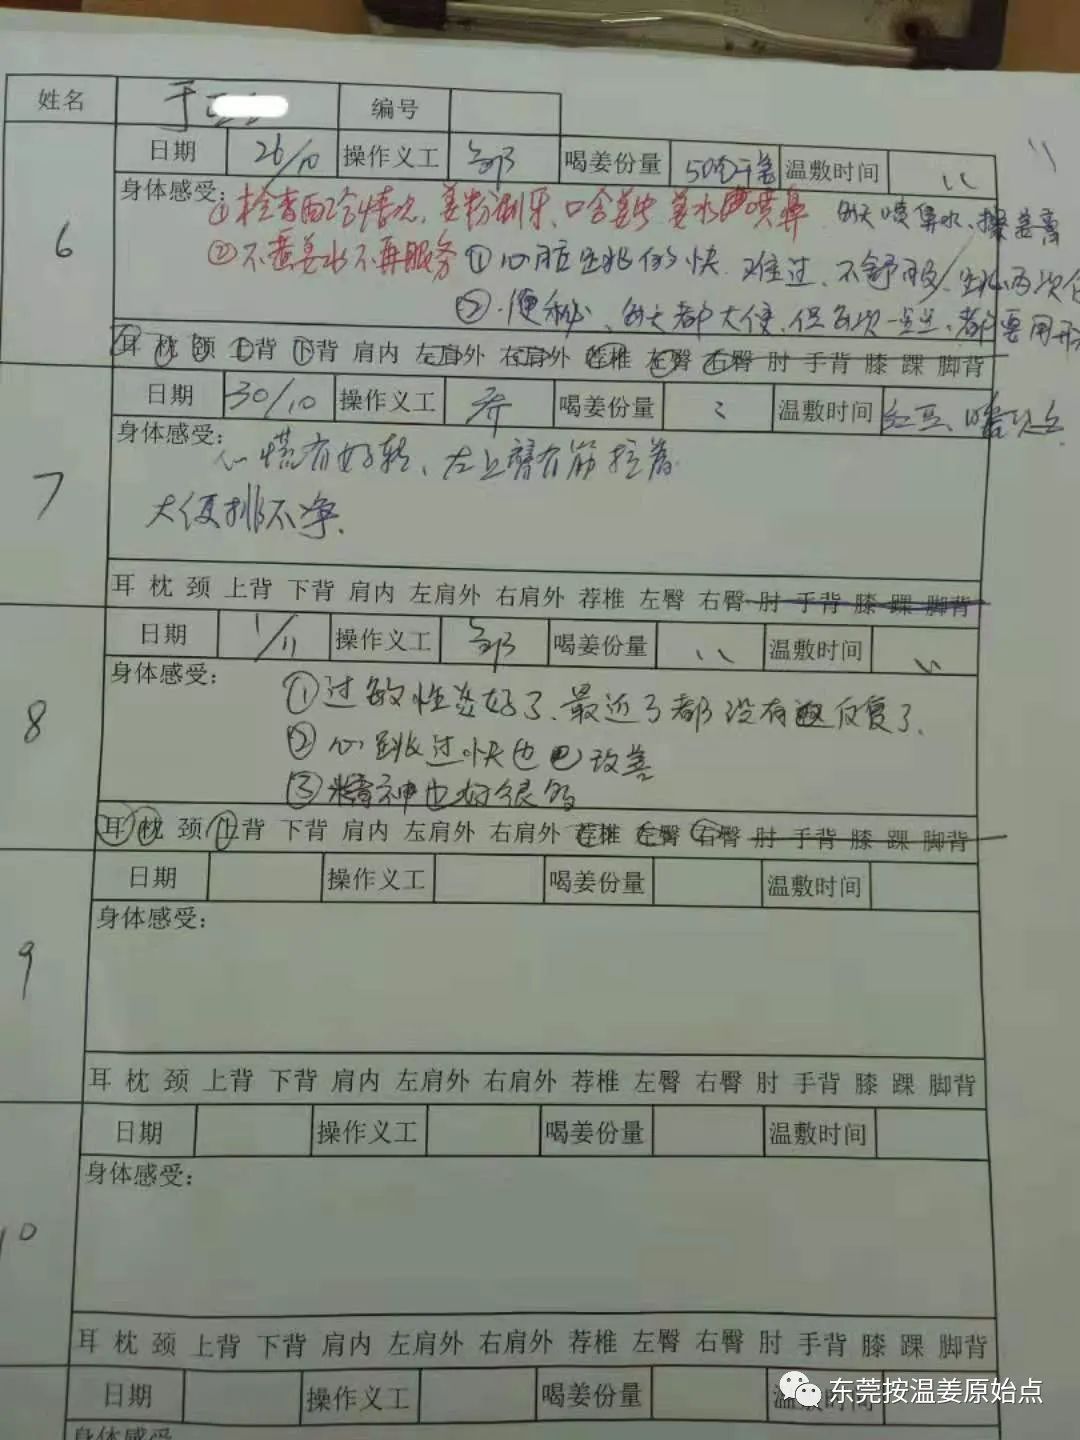 姓名 于 编号
6 日期 26/10 操作义工 邹 喝姜份量 50 干姜 温敷时间 \\
身体感受: ①检查 情况、姜粉刷牙、口含姜 姜水喷鼻 每天喷鼻水、擦姜膏
②不 姜水不再服务 ①心脏 的快 难过、不舒服 两次
②便秘、每天都大便,但每次一点点、都要用
耳 枕 颈 上背 下背 肩内 左肩外 右肩外 荐椎 左臀 右臀 肘 手背 膝 踝 脚背
7 日期 30/10 操作义工 喝姜份量 温敷时间 红豆
身体感受: 心慌有好转、左上臂有筋拉着
大便排不净.
耳 枕 颈 上背 下背 肩内 左肩外 右肩外 荐椎 左臀 右臀 肘 手背 膝 踝 脚背
8 日期 1/11 操作义工 邹 喝姜份量 \\ 温敷时间 \\
身体感受: ①过敏性炎好了、最近 都没有 反复了.
②心跳过快也已改善
③精神也好很多
耳 枕 颈 上背 下背 肩内 左肩外 右肩外 荐椎 左臀 右臀 肘 手背 膝 踝 脚背
9 日期 操作义工 喝姜份量 温敷时间
身体感受:
耳 枕 颈 上背 下背 肩内 左肩外 右肩外 荐椎 左臀 右臀 肘 手背 膝 踝 脚背
10 日期 操作义工 喝姜份量 温敷时间
身体感受:
耳 枕 颈 上背 下背 肩内 左肩外 右肩外 荐椎 左臀 右臀 肘 手背 膝 踝 脚背
日期 操作义工 喝姜份量
身体感受
东莞按温姜原始点